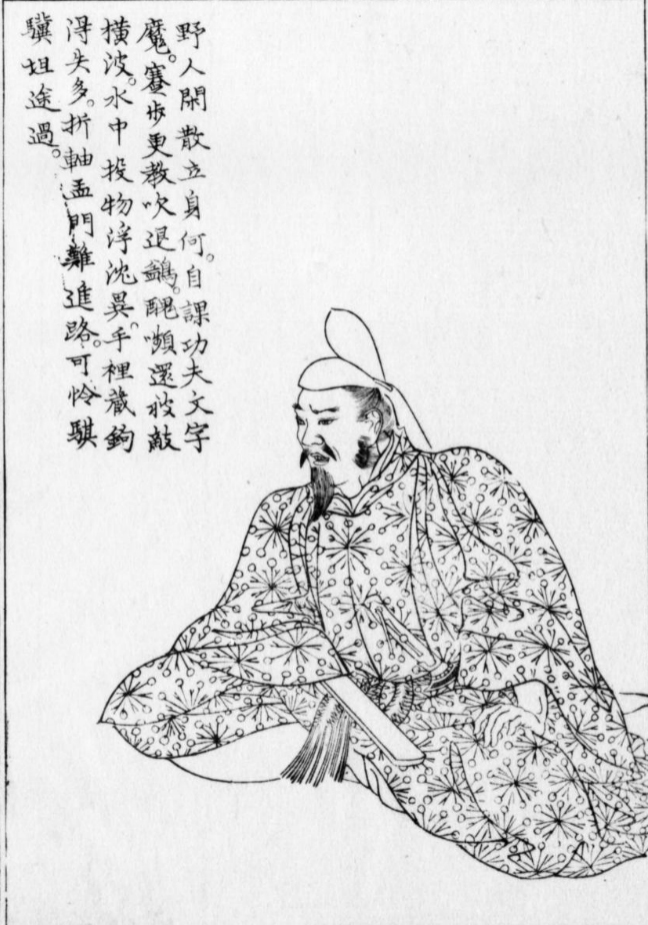 野人閑散立身何。自課功夫文字
魔。蹇歩更教吹退鷁。醜嚬還被敵
横波。水中投物浮沈異。手裡蔵鉤
得失多。折軸孟門難進路。可怜騏
驥坦途過。